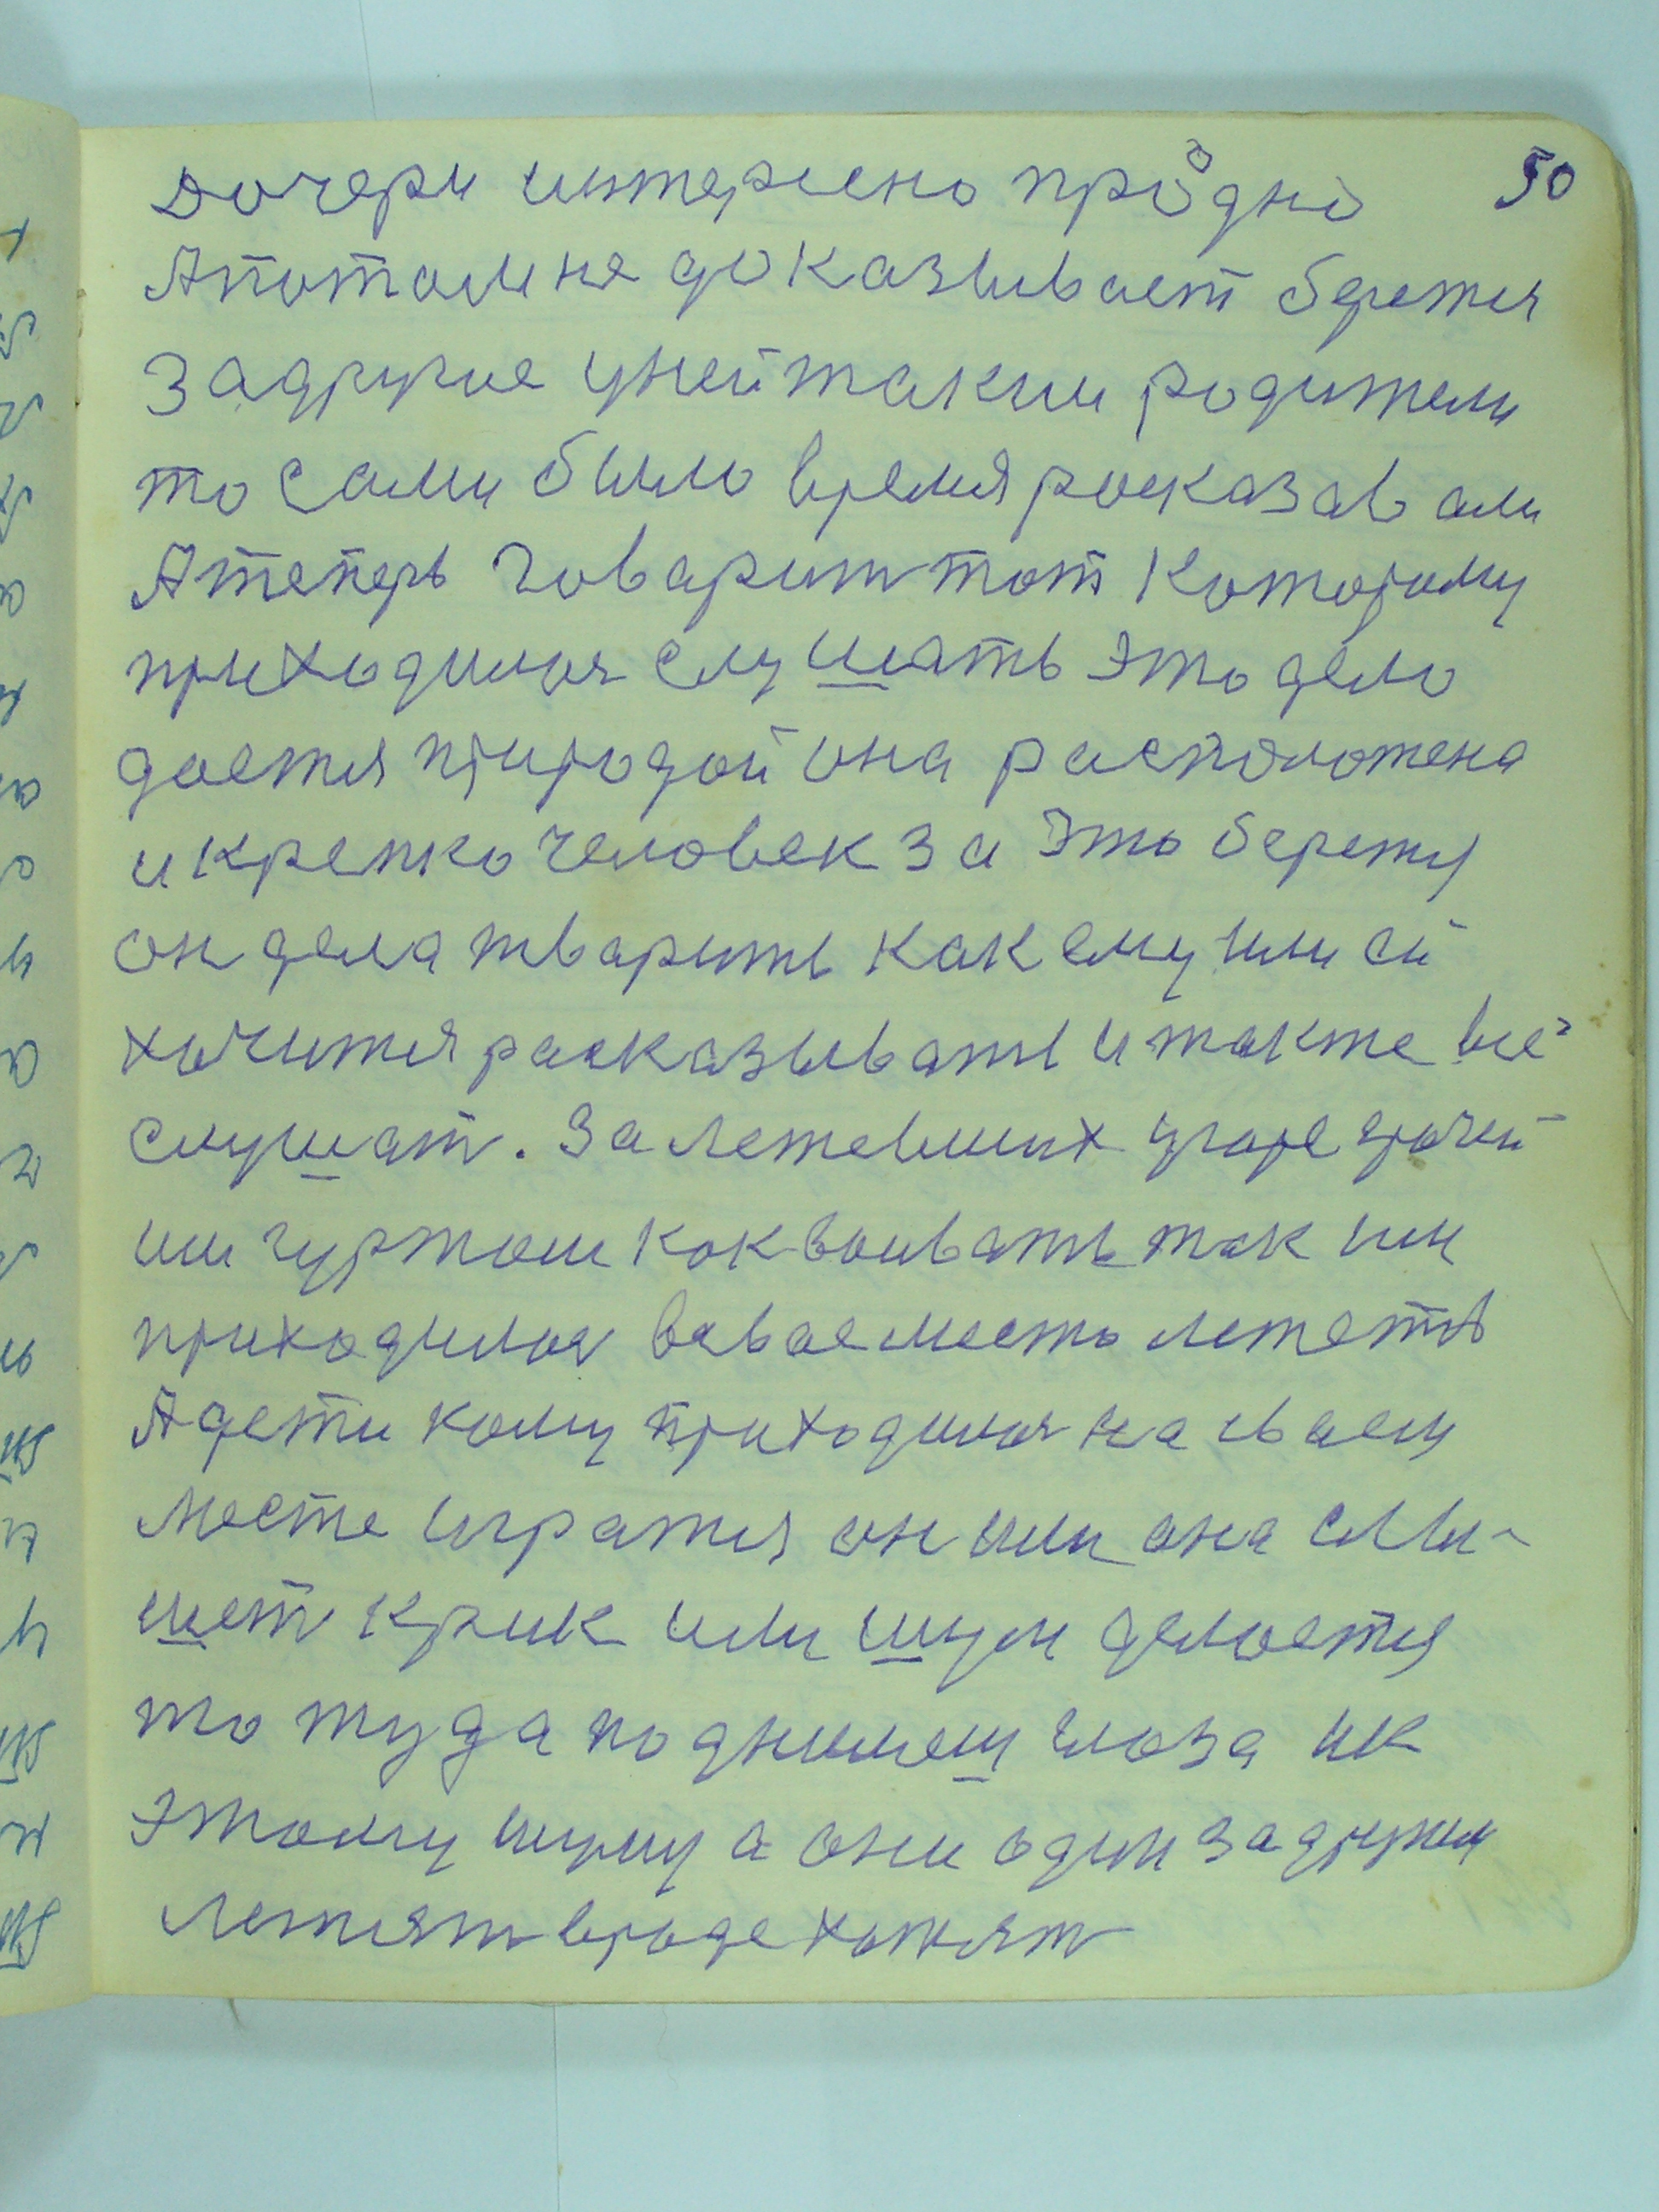 50
дочери интересно про одно
А потом не доказывает берется
за другие у ней такии родители
то сами было время росказавали
А теперь говарит тот которому
приходилося слушать это дело
дается природой она расположена
и крепко человек за это берется
он дела тварить как ему или ей
хочится расказывать и также все
слушат. Залетевших у горе грачей
ии гуртом как воивать так им
приходилося всвае место лететь
А дети кому приходилося на сваем
месте играться он или она слы-
шет крик или шум делается
то туда поднимеш глаза ик
этому шуму а они один за другим
летят вроде хотят